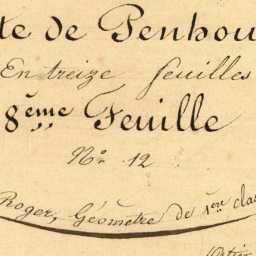 te de Penhou
En treize feuilles
8ème Feuille
N° 12
Roger, Géomètre de 1ere clas